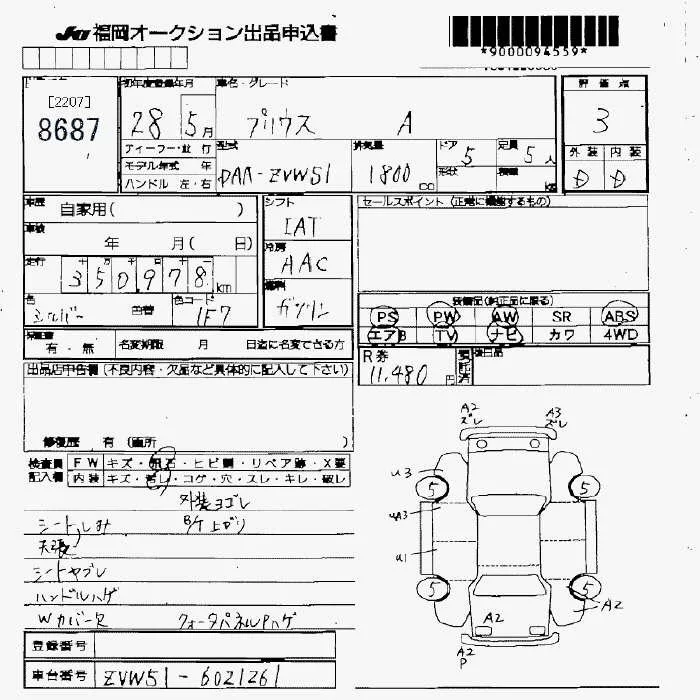 JU 福岡オークション出品申込書
*9000094559*
[2207]
8687
初年度登録年月
28 5月
車名・グレード
プリウス A
評価点
3
ディーラー・並行
モデル年式 年
ハンドル 左・右
型式
DAA-ZVW51
排気量
1800 cc
ドア
5
形状
定員
5人
積載 kg
外装 内装
D D
車歴
自家用( )
車検
年 月( 日)
走行
十 万 千 百 十
350978 km
色
シルバー
色替
色コード
1F7
シフト
IAT
冷房
AAC
燃料
ガソリン
セールスポイント (正常に機能するもの)
装備品(純正品に限る)
PS PW AW SR ABS
エアB TV ナビ カワ 4WD
有・無 名変期限 月 日迄に名変できる方
R券
11,480円
後日品
出品店申告欄(不良内容・欠品など具体的に記入して下さい)
修復歴 有 (箇所 )
検査員 FW キズ・飛石・ヒビ割・リペア跡・X要
記入欄 内装 キズ・汚レ・コゲ・穴・スレ・キレ・破レ
外装ヨゴレ
シートしみ B/K上がり
天張
シートヤブレ
ハンドルハゲ
Wカバー欠 クォータパネルPハゲ
登録番号
車台番号 ZVW51-6021261
A2 ズレ
A3 ズレ
U3
5 5
UA3
U1
5 5
A2
A2
A2
P